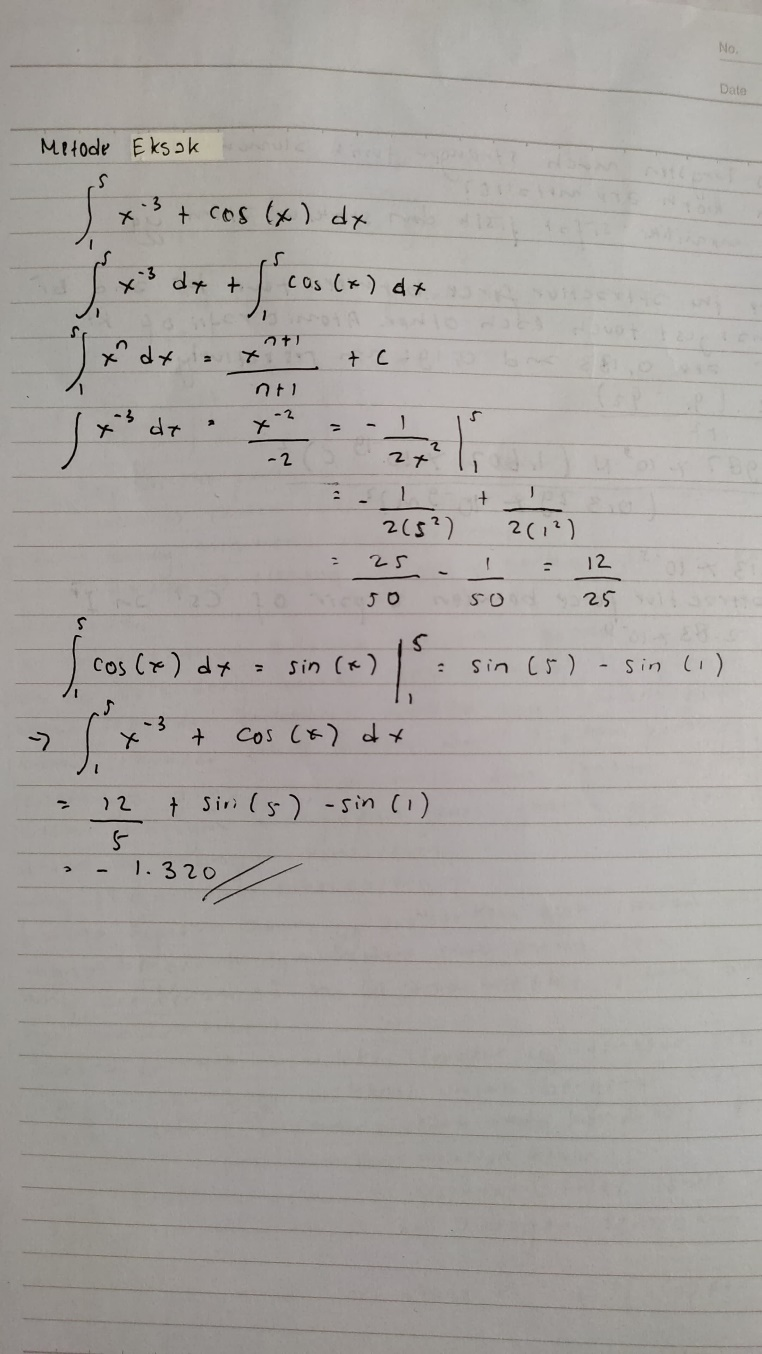 No.
Date
Metode Eksak
∫₁⁵ x⁻³ + cos (x) dx
∫₁⁵ x⁻³ dx + ∫₁⁵ cos (x) dx
∫₁⁵ xⁿ dx = xⁿ⁺¹/n+1 + C
∫ x⁻³ dx = x⁻²/-2 = - 1/2x² |₁⁵
= - 1/2(5²) + 1/2(1²)
= 25/50 - 1/50 = 12/25
∫₁⁵ cos (x) dx = sin (x) |₁⁵ = sin (5) - sin (1)
→ ∫₁⁵ x⁻³ + cos (x) dx
= 12/5 + sin (5) - sin (1)
= - 1.320